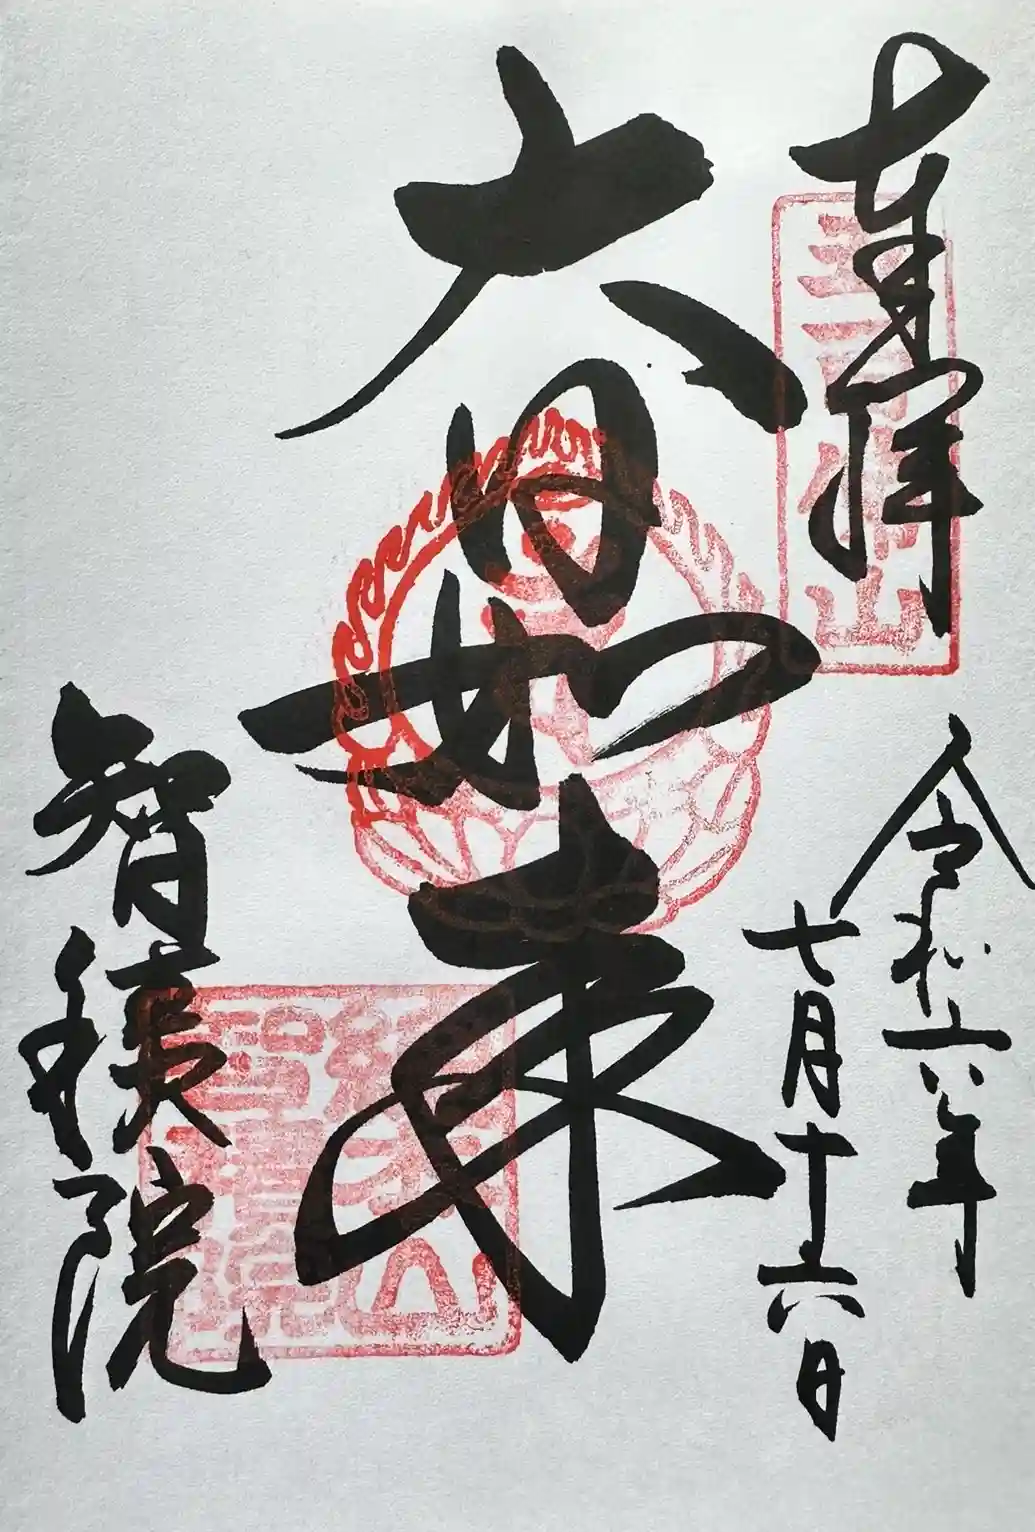 奉拝
五百佛山
令和六年
七月十六日
大日如来
智積院